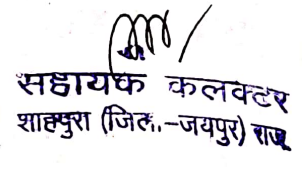 सहायक कलक्टर
शाहपुरा (जिला.-जयपुर) राज